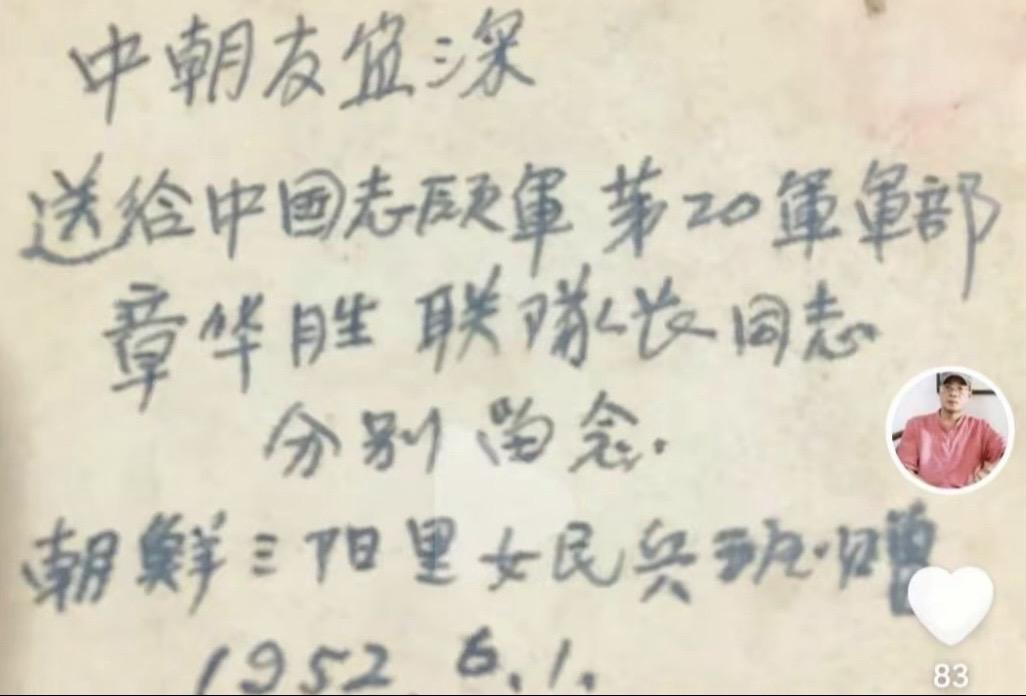 中朝友谊深
送给中国志愿軍 第20軍軍部
章华胜 联隊长同志
分别留念.
朝鮮三阳里女民兵班.赠
1952.6.1.
83